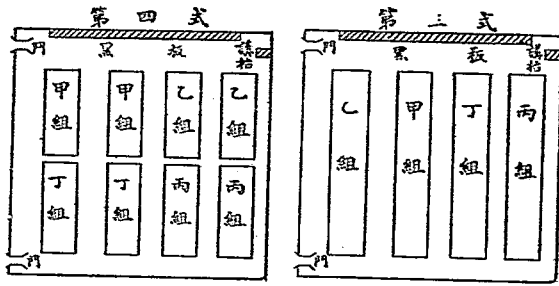 第四式
門
黑板
講枱
甲組
甲組
乙組
乙組
丁組
丁組
丙組
丙組
門
第三式
門
黑板
講枱
乙組
甲組
丁組
丙組
門